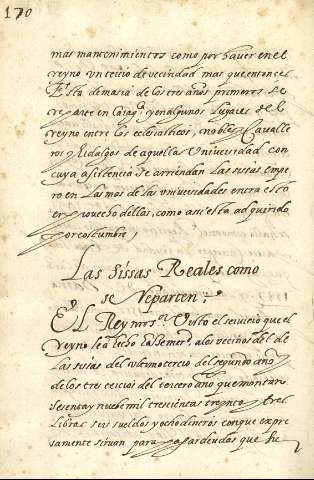 170
mas mantenimientos como por hauer en el
reyno un tercio de vecindad mas que entonces
Esta demasia de los tres años primeros se
reparte en Çarag.ª y en algunos Lugares del
reyno entre los eclesiasticos, nobles Cavalle
ros y Hidalgos de aquella Universidad con
cuya asistencia se arriendan las sisas empe
ro en las mas de las universidades entra esto
en provecho dellas, como assi esta adquirido
por costumbre,
Las Sissas Reales como
se Reparten
El Rey nro s.r Visto el servicio que el
Reyno le a hecho
de las sisas del ultimo tercio del segundo año
de los tres tercios del tercero año que montan
sesenta y nueve mil trescientas treynta y tres
Libras seis sueldos y ocho dineros con que expre
samente sirvan para pagar deudas que su